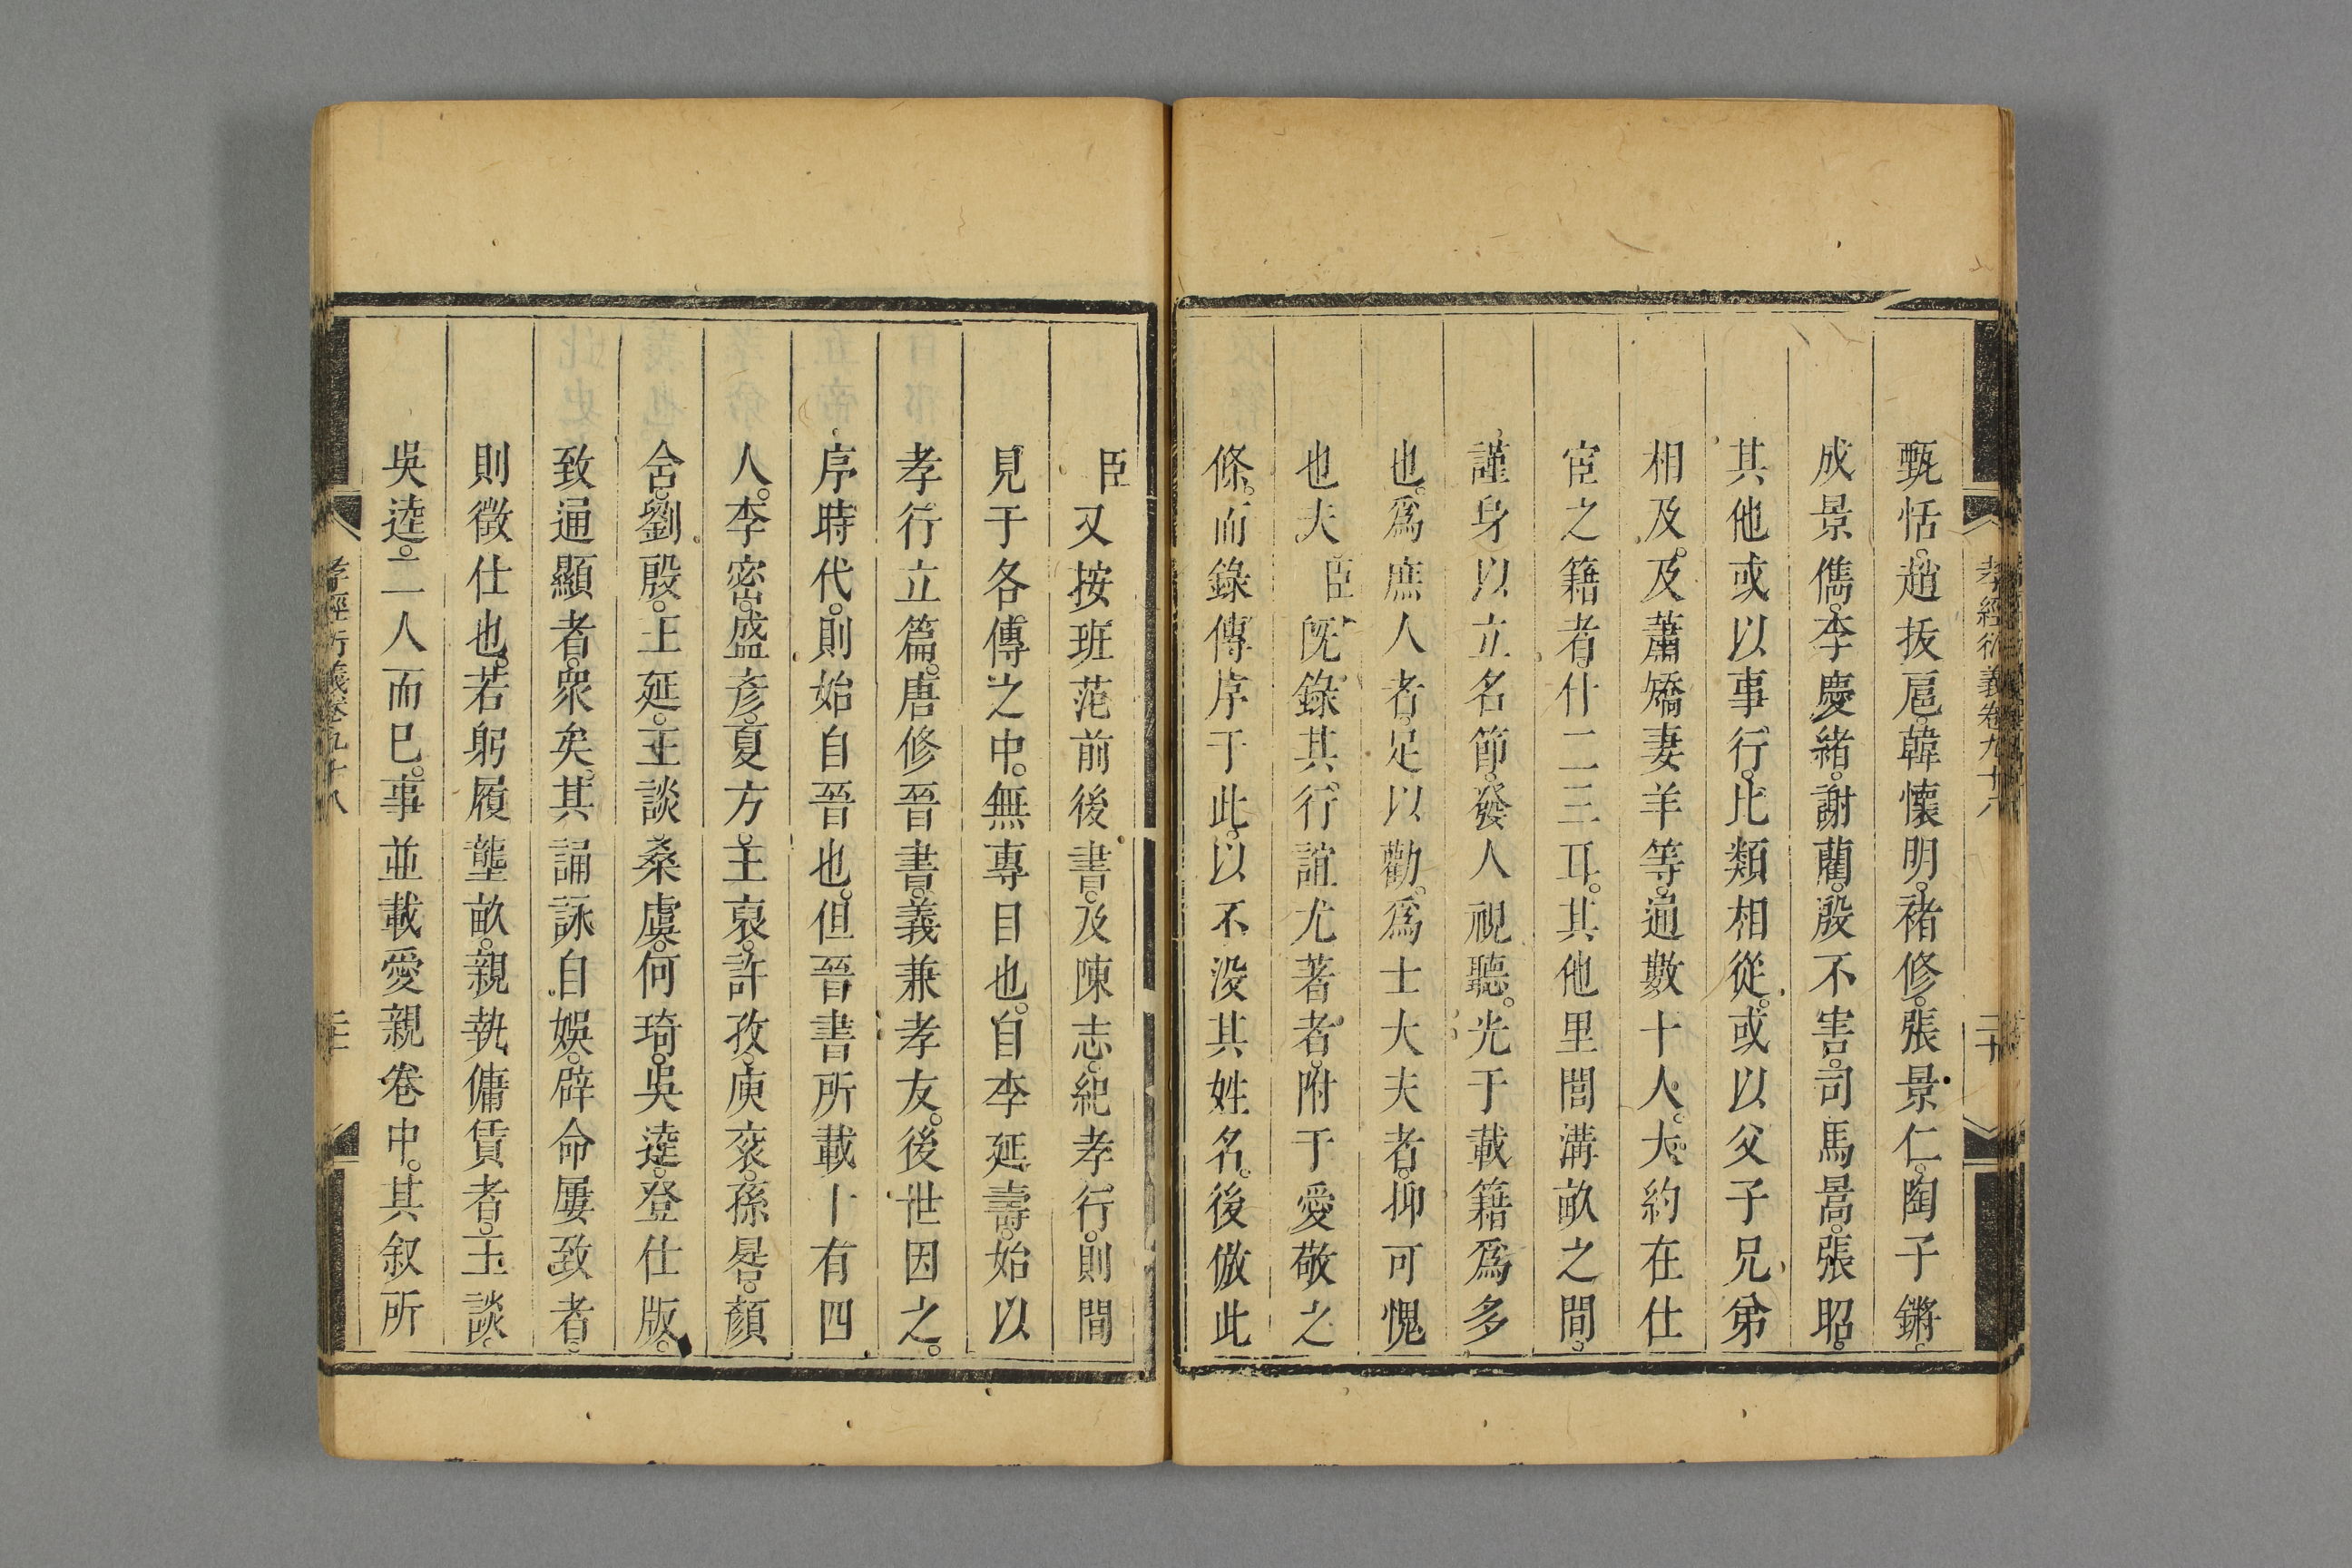 孝經衍義卷九十八
二十
甄恬。趙拔扈。韓懷明。褚修。張景仁。陶子鏘。
成景儁。李慶緒。謝藺。殷不害。司馬暠。張昭。
其他或以事行。比類相從。或以父子兄弟
相及。及蕭矯妻羊等。通數十人。大約在仕
宦之籍者。什二三耳。其他里閭溝畝之間。
謹身以立名節。發人視聽。光于載籍爲多
也。爲庶人者。足以勸。爲士大夫者。抑可愧
也夫。臣旣錄其行誼尤著者。附于愛敬之
條。而錄傳序于此。以不没其姓名。後倣此
臣又按班范前後書。及陳志。紀孝行。則間
見于各傳之中。無專目也。自李延壽。始以
孝行立篇。唐修晉書。義兼孝友。後世因之。
序時代。則始自晉也。但晉書所載十有四
人。李密。盛彥。夏方。王裒。許孜。庾袞。孫晷。顏
含。劉殷。王延。王談。桑虞。何琦。吳逵。登仕版。
致通顯者。衆矣。其誦詠自娛。辟命屢致者。
則徵仕也。若躬履壟畝。親執傭賃者。王談。
吳逵。二人而已。事並載愛親卷中。其叙所
孝經衍義卷九十八